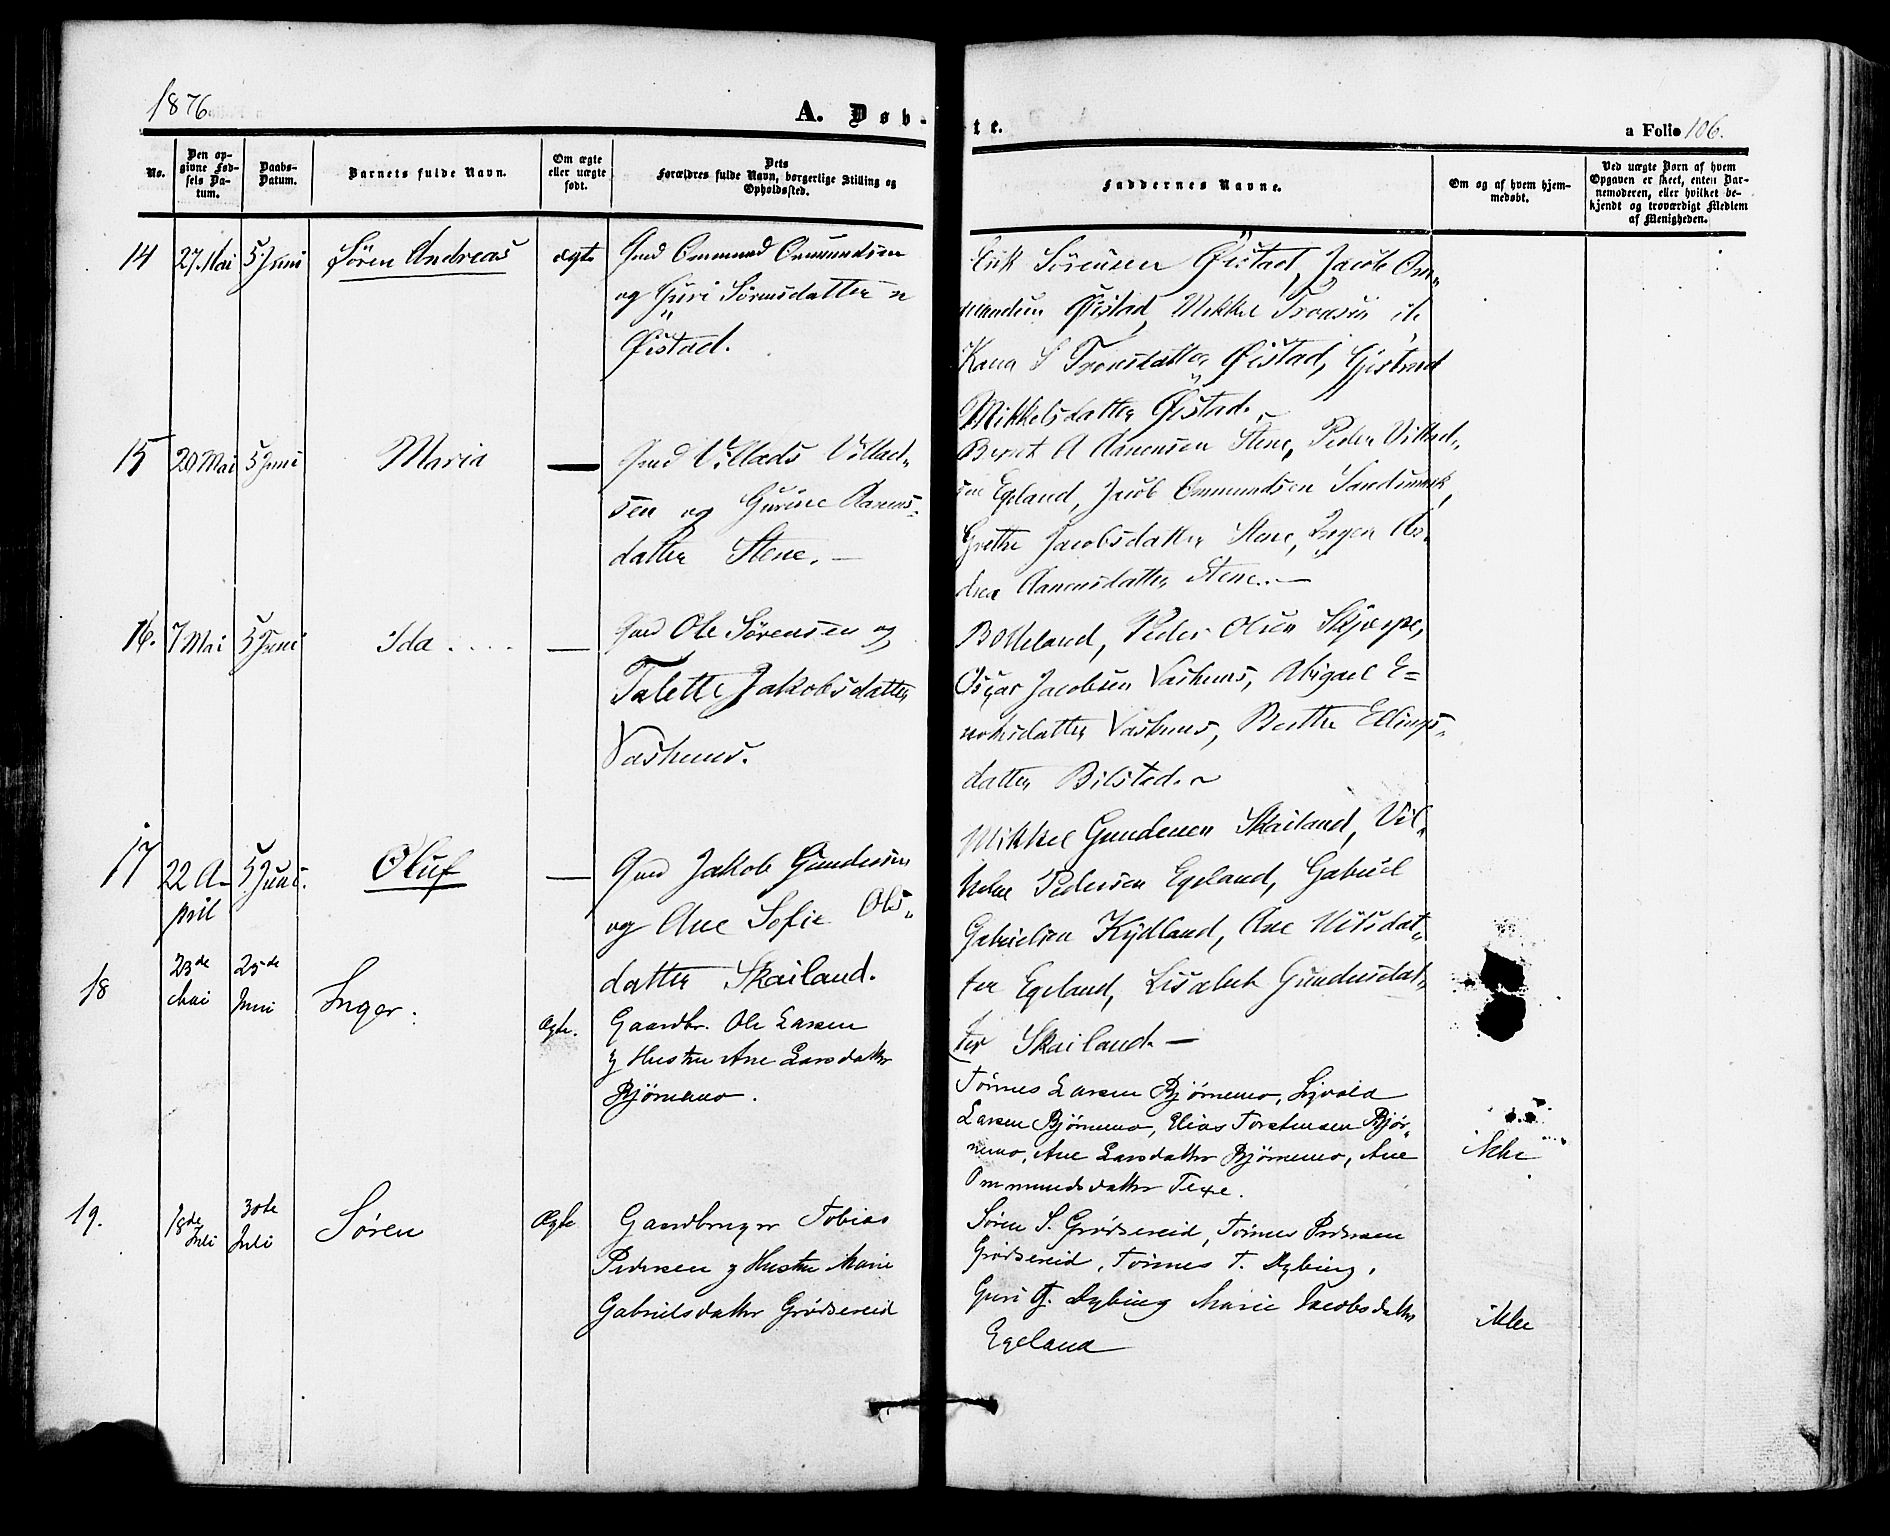 1876
A. Døb-
te.
a Folio 106.
No.
Den op-
givne Fød-
sels Da-
tum.
Daabs-
Datum.
Barnets fulde Navn.
Om ægte
eller uægte
født.
Dets
Forældres fulde Navn, borgerlige Stilling og
Opholdssted.
Faddernes Navne.
Om og af hvem hjem-
medøbt.
Ved uægte Børn af hvem
Opgaven er skeet, enten Bar-
nemoderen, eller hvilket be-
kjendt og troværdigt Medlem
af Menigheden.
14
27. Mai
5. Juni
Søren Andreas
ægte
Gmd Ommund Ommundsen
og Guri Sørensdatter
Øistad.
Erik Sörensen Øistad, Jacob Om-
mundsen Øistad, Mikkel Tronsen
Tronsdatter Øistad, Gjertrud
Mikkelsdatter Øistad.
15
20 Mai
5 Juni
Maria
—
Gmd Villads Villad-
sen og Gurine Aanens-
datter Stene. —
Berent A Aanensen Stene, Peder Villad-
sen Egeland, Jacob Ommundsen
Grethe Jacobsdatter Stene, Inger An-
drea Aanensdatter Stene. —
16.
7 Mai
5 Juni
Ida . . . .
—
Gmd Ole Sørensen og
Talette Jakobsdatter
Vashuus.
Botteland, Peder Olsen Skjerpe,
Oscar Jacobsen Vashuus, Abigael E=
noksdatter Vashuus, Berthe Ellings-
datter Bilstad.
17
22 A-
pril
5 Juni.
Oluf
—
Gmd Jakob Gundersen
og Ane Sofie Ols-
datter Skailand.
Mikkel Gundersen Skailand, Vil-
helm Pedersen Egeland, Gabriel
Gabrielsen Kydland, Ane Nilsdat-
ter Egeland, Lisabet Gundersdat-
ter Skailand. —
18
23de
Mai
25de
Juni
Inger.
Ægte.
Gaardbr. Ole Larsen
og Hustru Ane Larsdatter
Bjørnemo.
Tönnes Larsen Bjørnemo, Sigvald
Larsen Bjørnemo, Elias Torstensen Bjør-
nemo, Ane Larsdatter Bjørnemo, Ane
Ommundsdatter Texe.
ikke
19.
18de
Juli
30te
Juli
Søren
Ægte
Gaardbruger Tobias
Pedersen og Hustru Marie
Gabrielsdatter Grødsereid
Søren S. Grødsereid, Tönnes Pedersen
Grødsereid, Tönnes T. Dybing,
Guri T. Dybing Marie Jacobsdatter
Egeland
ikke